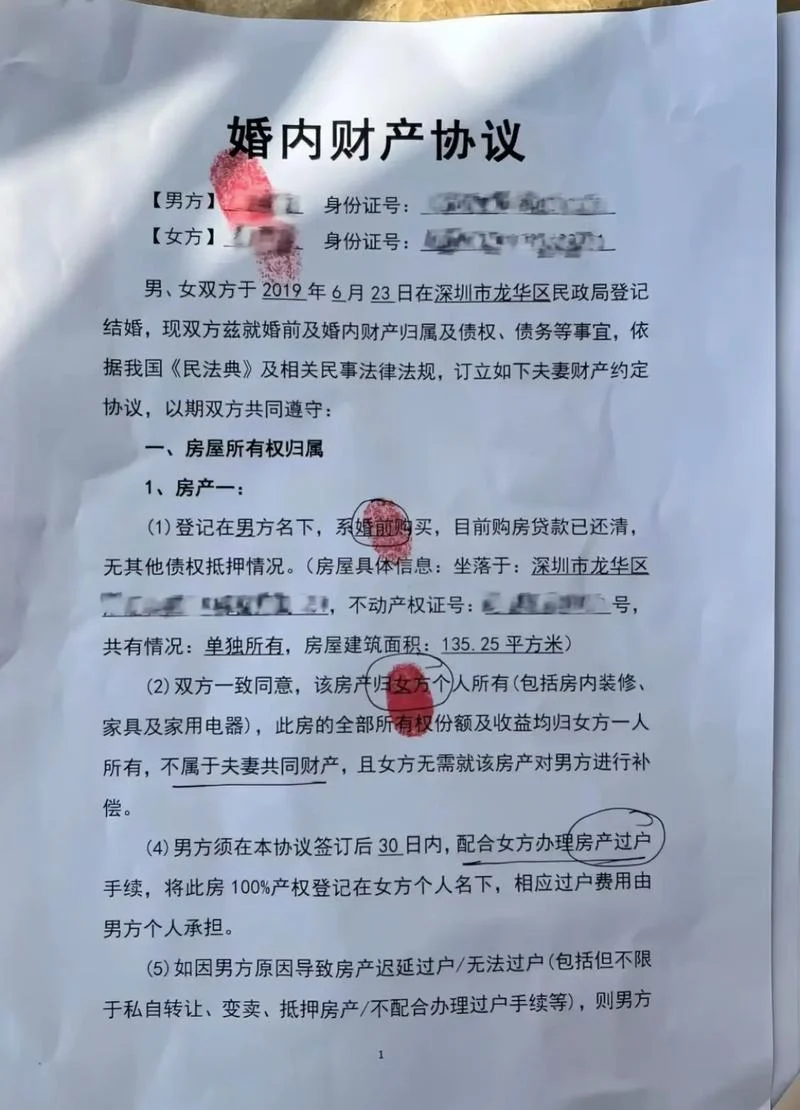 婚内财产协议
【男方】 身份证号：
【女方】 身份证号：
男、女双方于 2019 年 6 月 23 日在深圳市龙华区民政局登记
结婚，现双方兹就婚前及婚内财产归属及债权、债务等事宜，依
据我国《民法典》及相关民事法律法规，订立如下夫妻财产约定
协议，以期双方共同遵守：
一、房屋所有权归属
1、房产一：
(1)登记在男方名下，系婚前购买，目前购房贷款已还清，
无其他债权抵押情况。（房屋具体信息：坐落于：深圳市龙华区
，不动产权证号： 号，
共有情况：单独所有，房屋建筑面积：135.25 平方米）
(2)双方一致同意，该房产归女方个人所有(包括房内装修、
家具及家用电器)，此房的全部所有权份额及收益均归女方一人
所有，不属于夫妻共同财产，且女方无需就该房产对男方进行补
偿。
(4)男方须在本协议签订后 30 日内，配合女方办理房产过户
手续，将此房 100%产权登记在女方个人名下，相应过户费用由
男方个人承担。
(5)如因男方原因导致房产迟延过户/无法过户(包括但不限
于私自转让、变卖、抵押房产/不配合办理过户手续等)，则男方
1